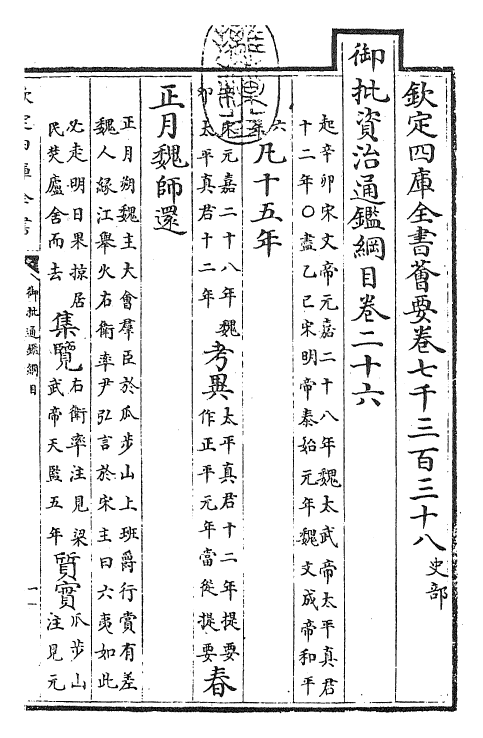 欽定四庫全書薈要卷七千三百三十八 史部
御批資治通鑑綱目卷二十六
起辛卯宋文帝元嘉二十八年魏太武帝太平真君
十二年○盡乙巳宋明帝泰始元年魏文成帝和平
六年
凡十五年
宋元嘉二十八年魏
太平真君十二年
考異
太平真君十二年提要
作正平元年當從提要
春
正月魏師還
正月朔魏主大會羣臣於瓜步山上班爵行賞有差
魏人緣江舉火右衛率尹弘言於宋主曰六夷如此
必走明日果掠居
民焚廬舍而去
集覽
右衛率注見梁
武帝天監五年
質實
瓜步山
注見元
欽定四庫全書
御批通鑑綱目
一